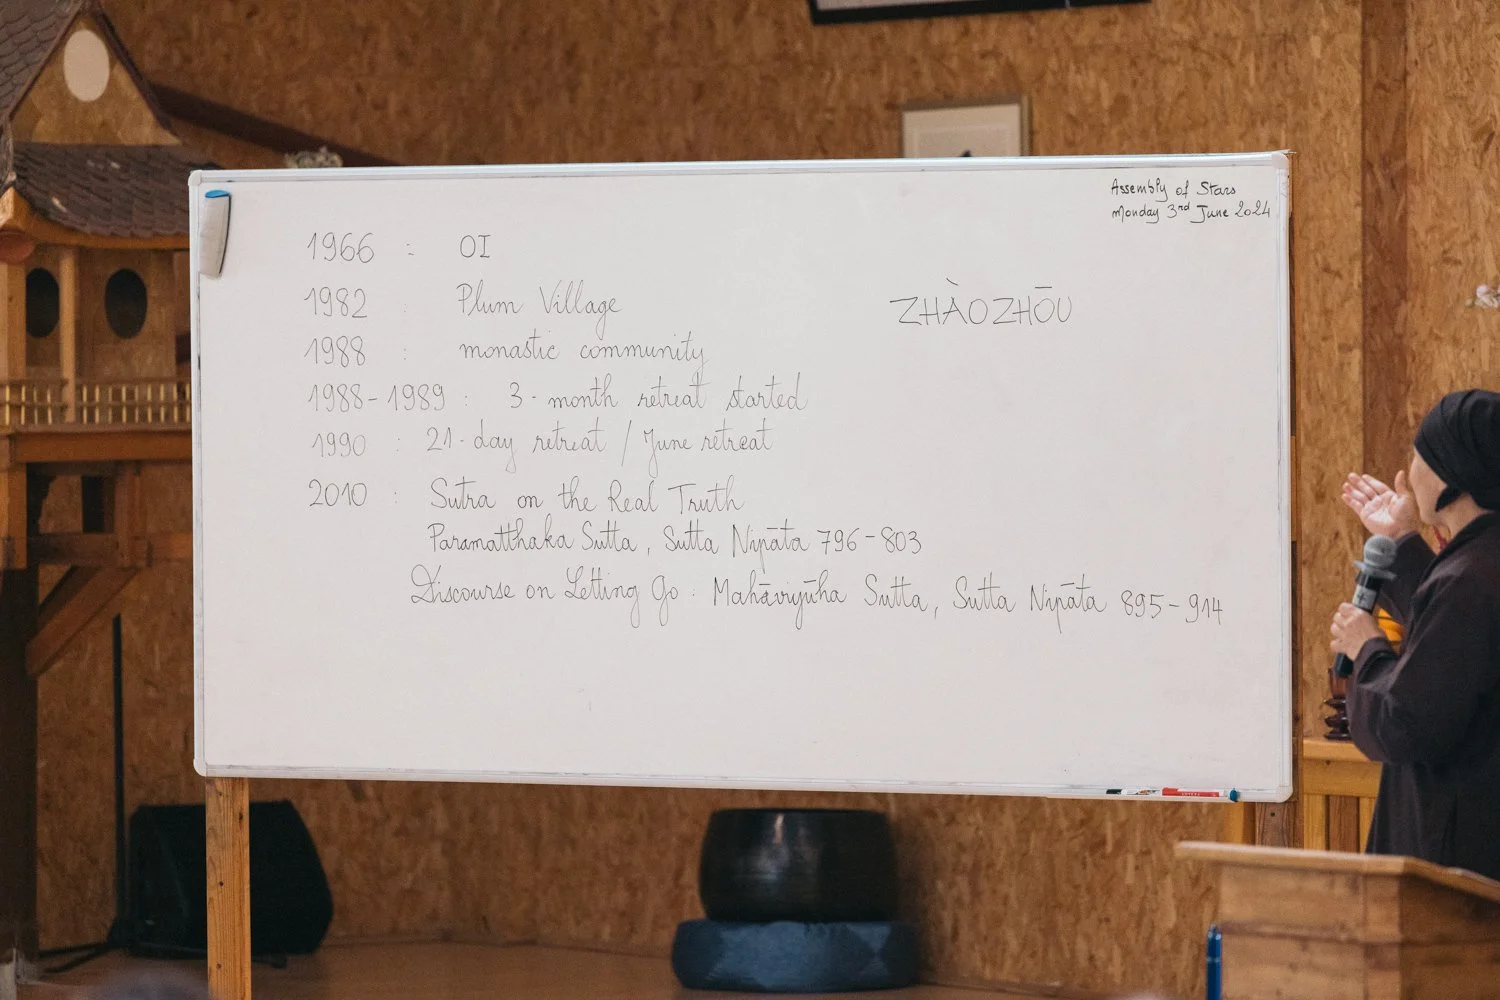 Assembly of Stars
Monday 3rd June 2024
1966 : OI
1982 : Plum Village
ZHÀOZHŌU
1988 : monastic community
1988-1989 : 3-month retreat started
1990 : 21-day retreat / June retreat
2010 : Sutra on the Real Truth
Paramatthaka Sutta, Sutta Nipāta 796-803
Discourse on Letting Go : Mahāviyūha Sutta, Sutta Nipāta 895-914